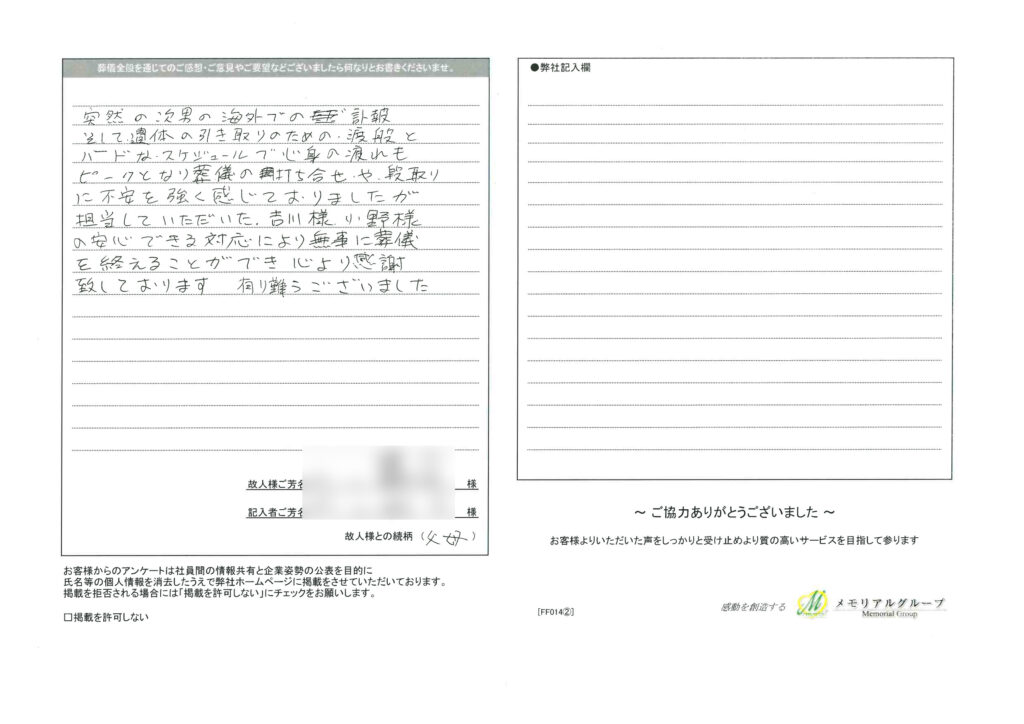 葬儀全般を通じてのご感想・ご意見やご要望などございましたら何なりとお書きくださいませ。
突然の次男の海外での訃報
そして遺体の引き取りのための渡航と
ハードなスケジュールで心身の疲れも
ピークとなり葬儀の打ち合せや段取り
に不安を強く感じておりましたが
担当していただいた、吉川様 小野様
の安心できる対応により無事に葬儀
を終えることができ 心より感謝
致しております 有り難うございました
故人様ご芳名 様
記入者ご芳名 様
故人様との続柄 (父母)
お客様からのアンケートは社員間の情報共有と企業姿勢の公表を目的に
氏名等の個人情報を消去したうえで弊社ホームページに掲載をさせていただいております。
掲載を拒否される場合には「掲載を許可しない」にチェックをお願いします。
□掲載を許可しない
●弊社記入欄
~ ご協力ありがとうございました ~
お客様よりいただいた声をしっかりと受け止めより質の高いサービスを目指して参ります
[FF014②]
感動を創造する
メモリアルグループ
Memorial Group